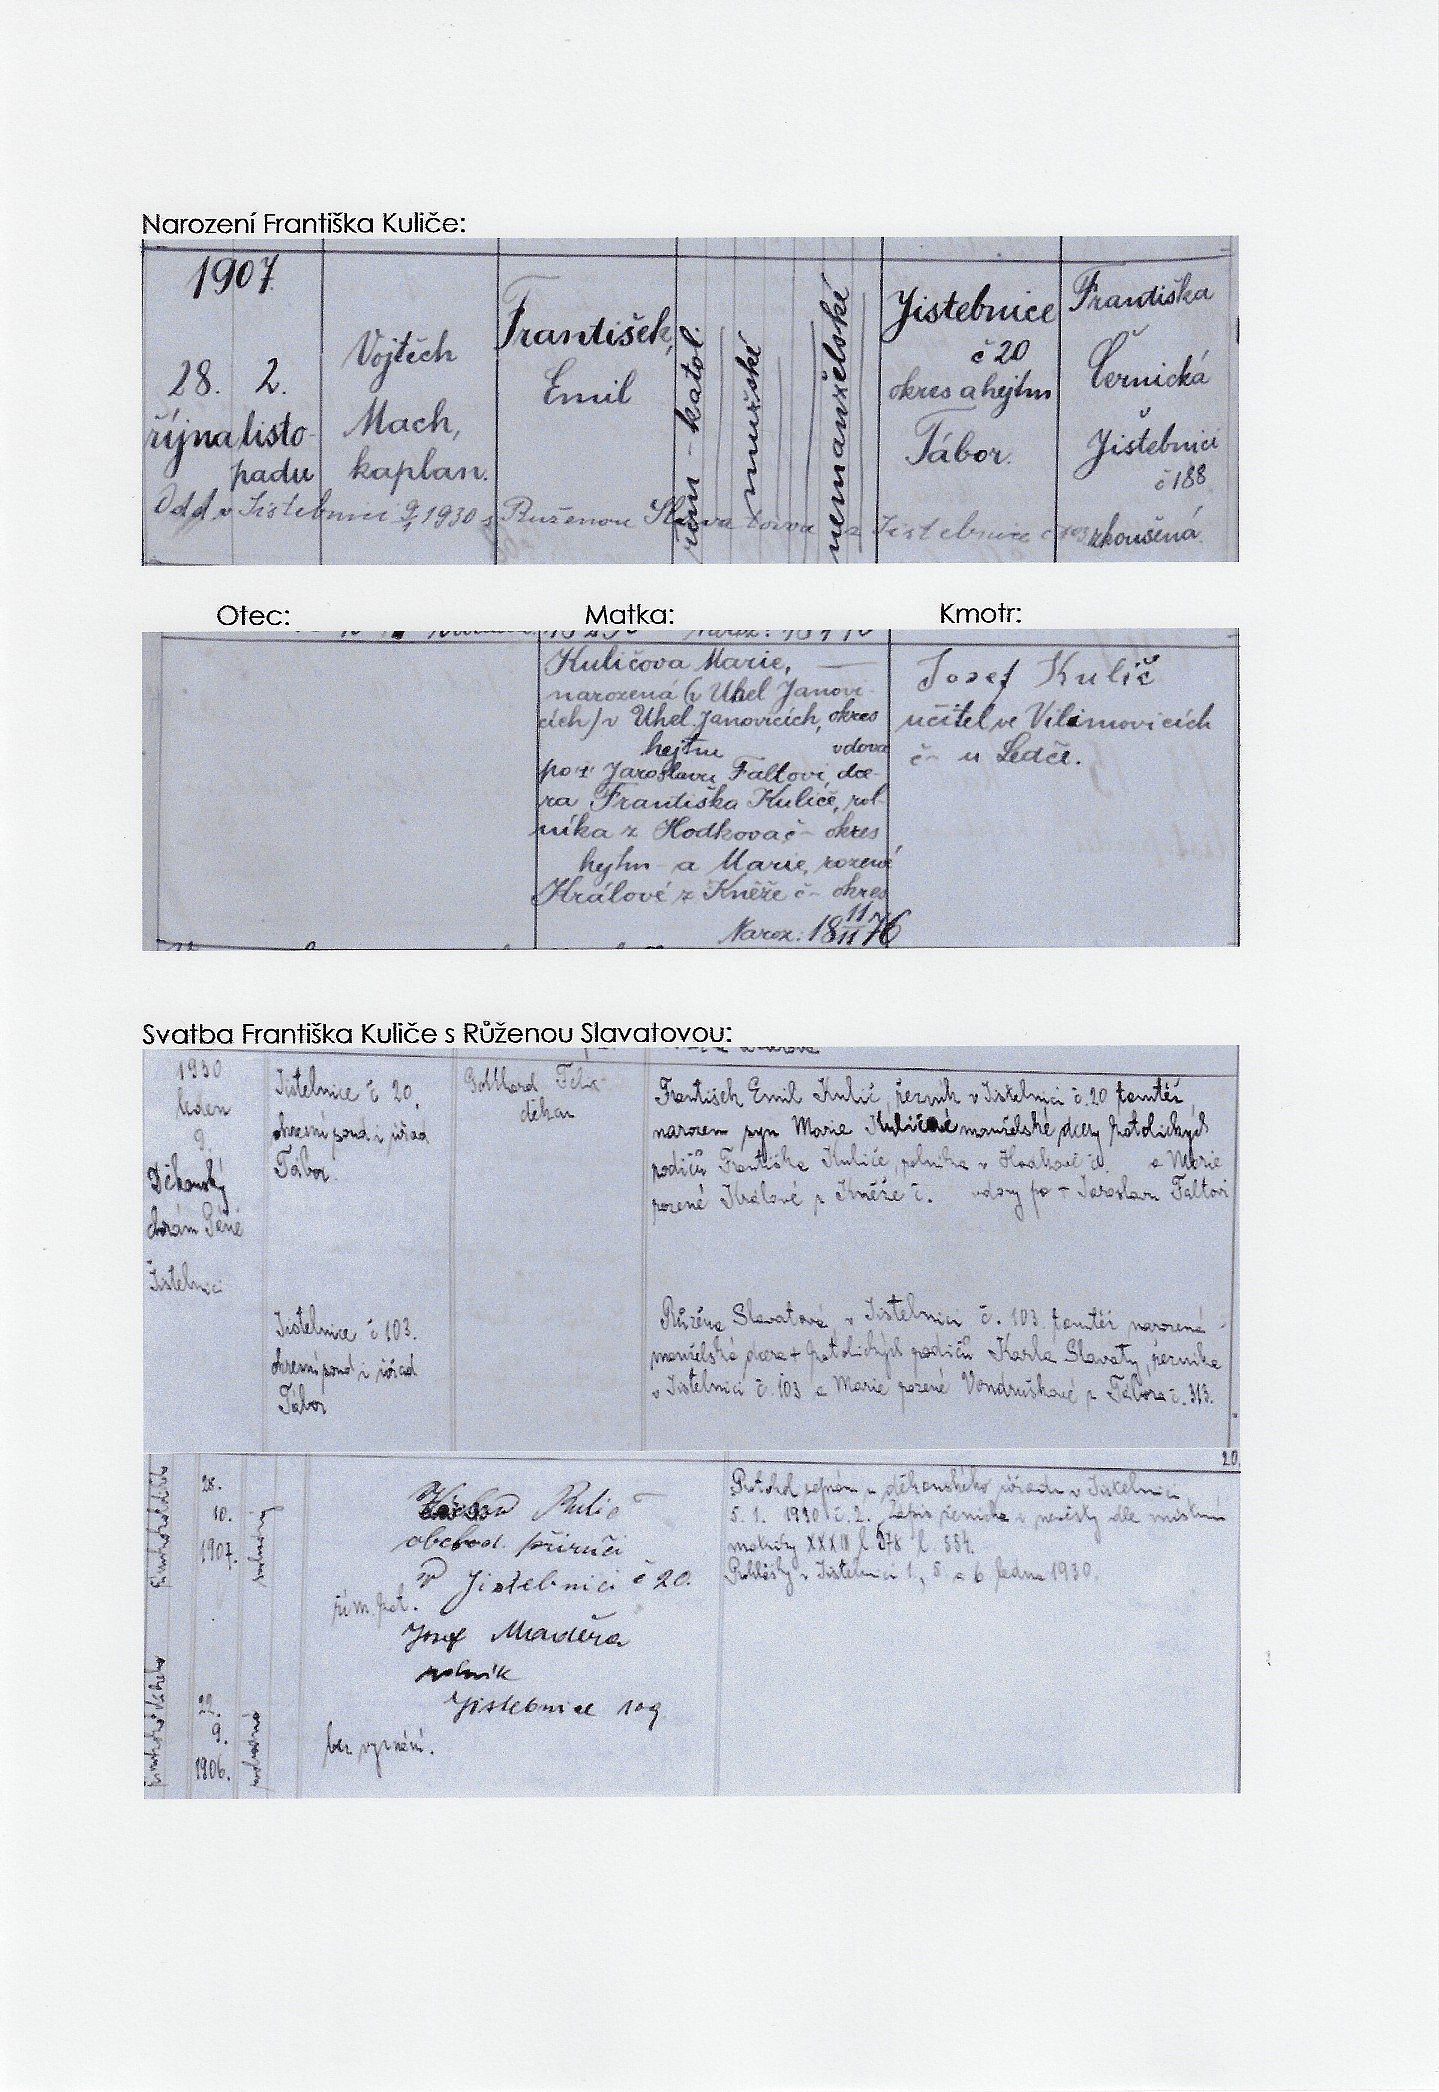 Narození Františka Kuliče:
1907
28. 2.
října listo-
padu
Vojtěch
Mach,
kaplan.
František,
Emil
řím-katol.
mužské
nemanželské
Jistebnice
č 20
okres a hejtm
Tábor.
Františka
Černická
Jistebnici
č 188
zkoušená
Odd. v Jistebnici 9/1 1930 s Růženou Slavatovou z Jistebnice č 103
Otec:
Matka:
Kmotr:
Kuličova Marie,
narozená (v Uhel Janovi-
cích) v Uhel. Janovicích, okres
hejtm vdova
po † Jaroslavu Faltovi, dce-
ra Františka Kuliče, rol-
níka z Hodkova č – okres
hejtm – a Marie, rozené
Králové z Kněže č – okres
Naroz: 18 11/11 76
Josef Kulič
učitel ve Vilimovicích
č – u Ledče.
Svatba Františka Kuliče s Růženou Slavatovou:
1930
leden
9.
Děkanský
chrám Páně
Jistebnici
Jistebnice č 20
okresní soud i úřad
Tábor.
Gotthard
děkan
František Emil Kulič, řezník v Jistebnici č. 20 tamtéž
narozen syn Marie Kuličové manželské dcery katolických
rodičů Františka Kuliče, rolníka v Hodkově č. a Marie
rozené Králové z Kněže č. vdovy po † Jaroslavu Faltovi
Jistebnice č 103.
okresní soud i úřad
Tábor
Růžena Slavatová v Jistebnici č. 103 tamtéž narozená
manželská dcera † katolických rodičů Karla Slavaty, řezníka
v Jistebnici č. 103 a Marie rozené Vondruškové z Tábora č. 313.
20
28.
10.
1907.
svobodný
Kulič
obchod. příručí
v Jistebnici č 20.
řím. kat.
Josef Maděra
rolník
Jistebnice 109
22.
9.
1906.
svobodná
bez vyznání.
Protokol sepsán u děkanského úřadu v Jistebnici
5. 1. 1930 č. 2. Zápis ženicha i nevěsty dle místní
matriky XXXIX l 378 l. 554.
Prohlášky v Jistebnici 1., 5. a 6 ledna 1930.